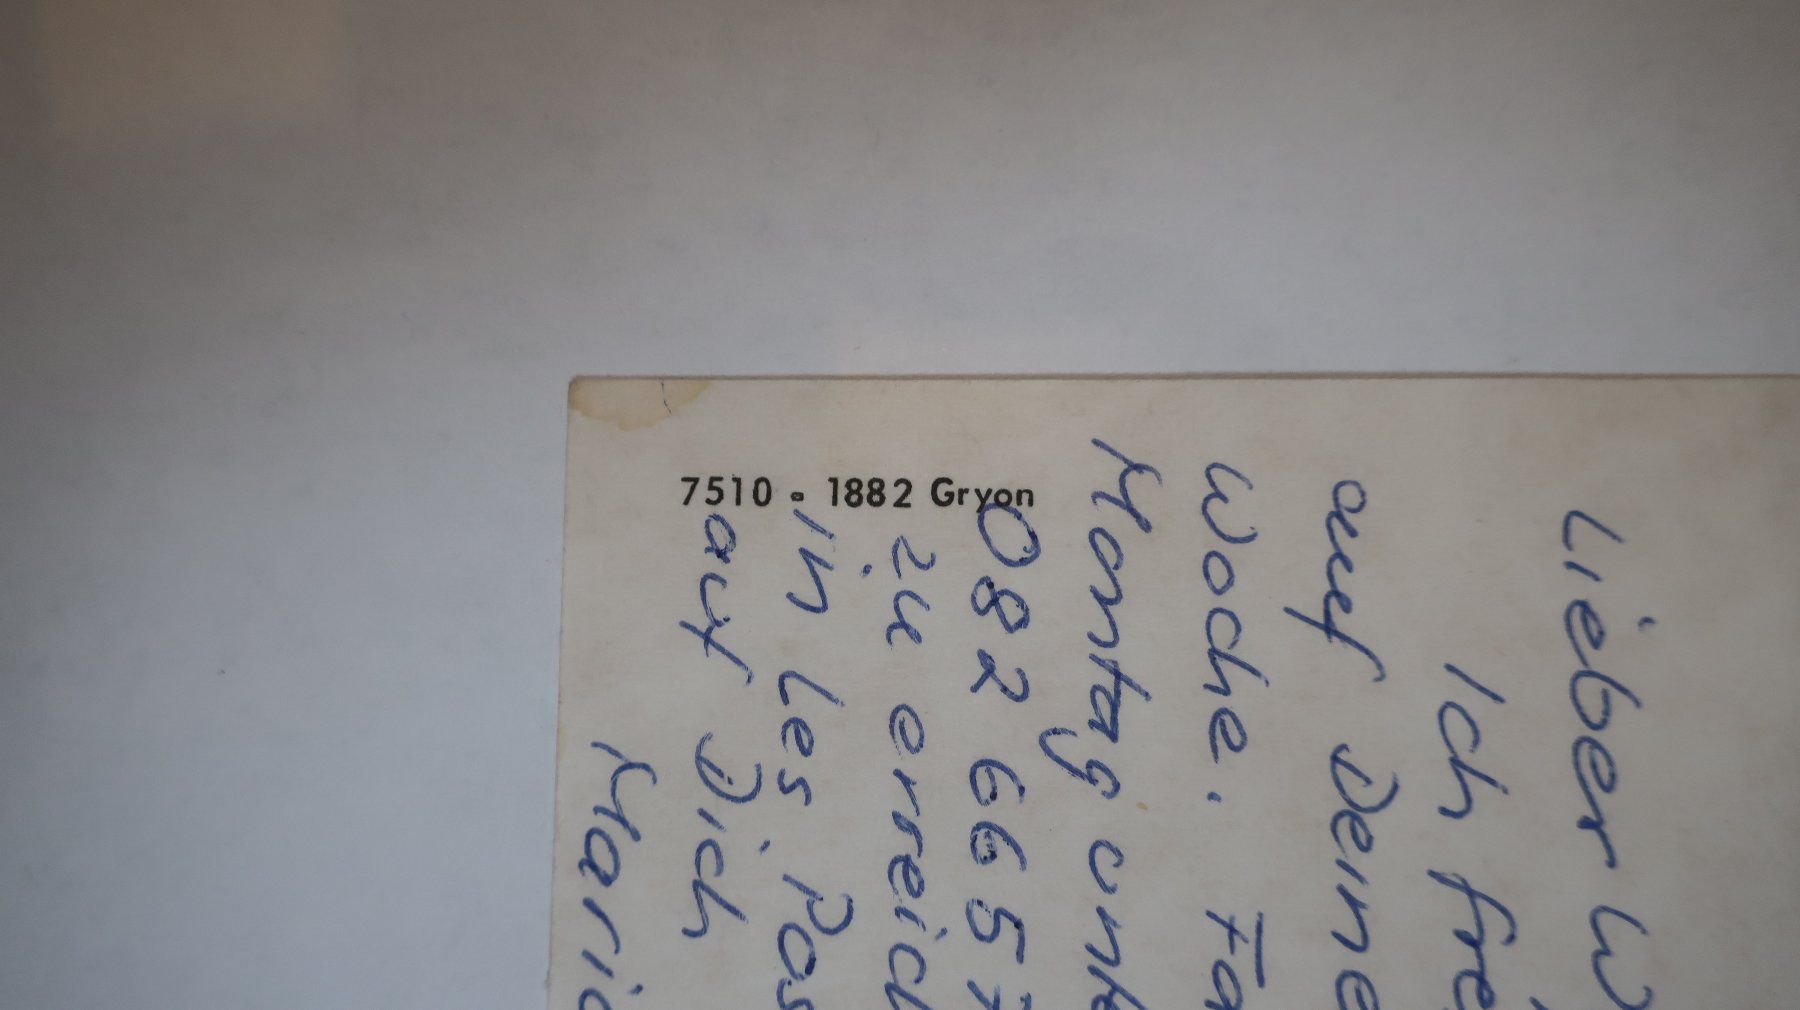 7510 - 1882 Gryon
Lieber W
Ich fre
auf Deine
Woche. Fa
Montag unt
082 6657
zu erreich
in Les Pos
auf Dich
Maria